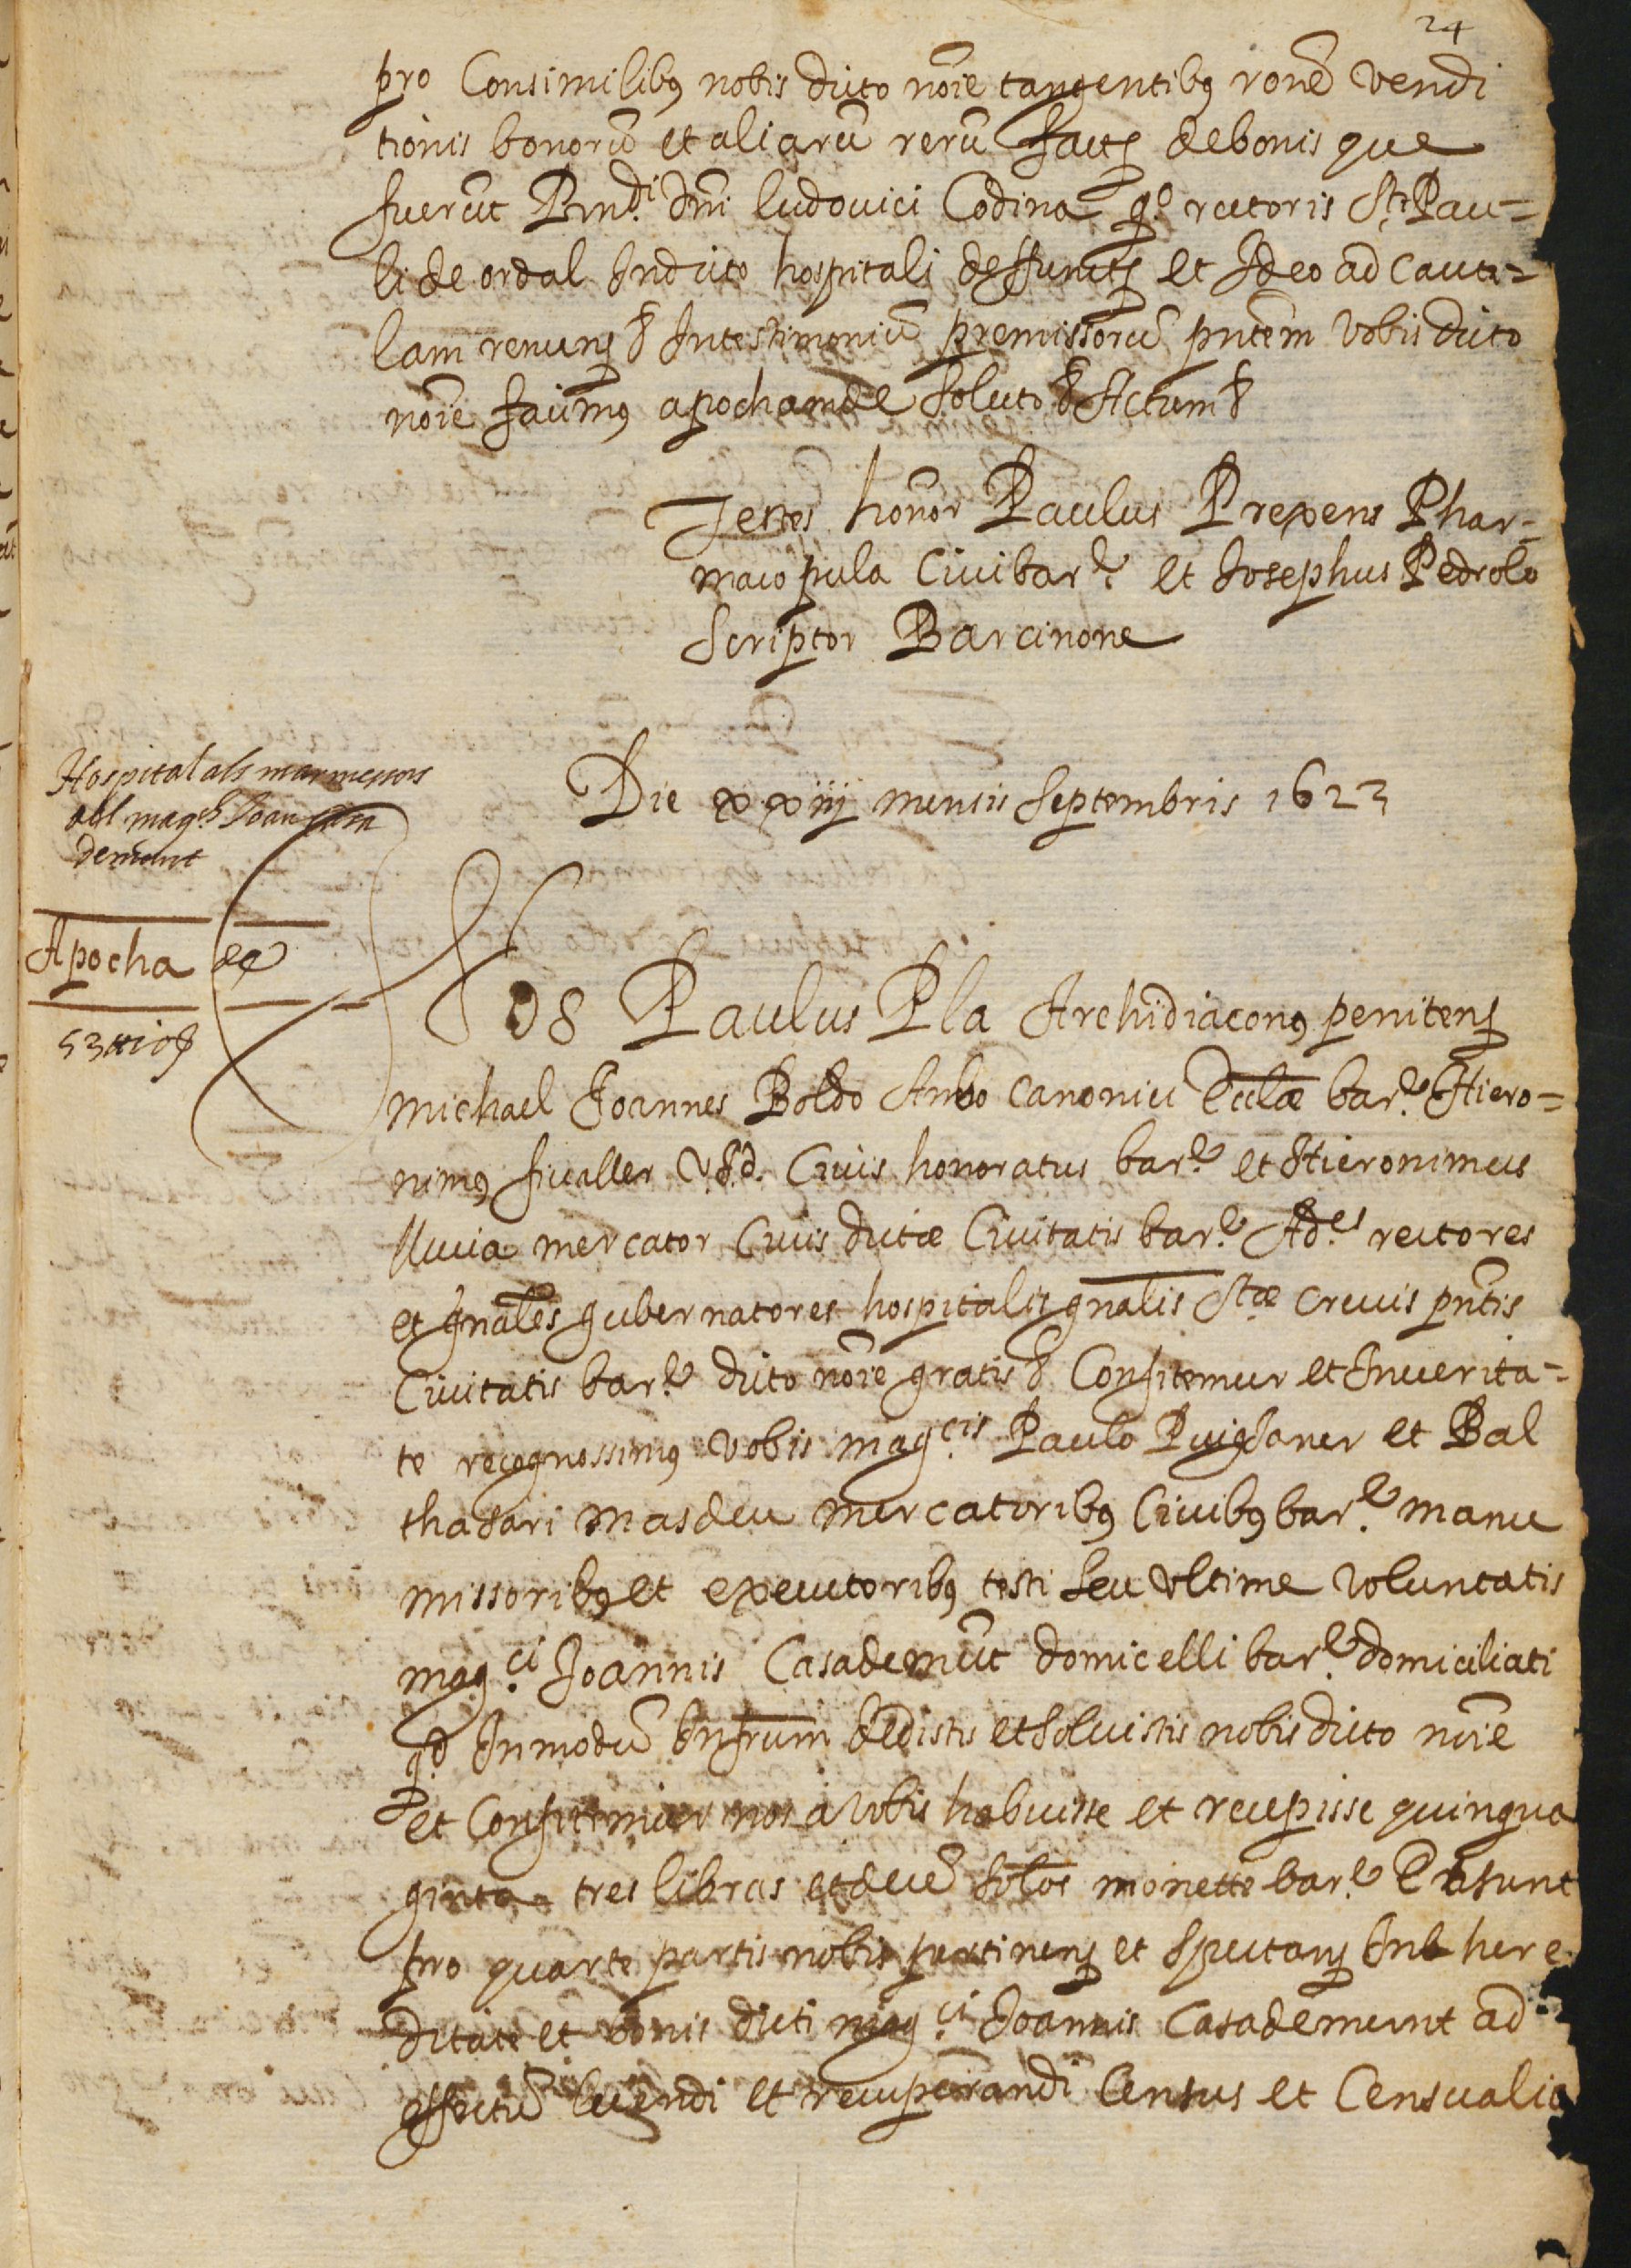 24
pro Consimilibꝯ nobis dicto noīe tangentibꝯ ronē vendi
tionis bonorū et aliarū rerū factꝭ de bonis que
fuerūt Rnd.i Dni ludovici Codina qº rectoris Sti Pau=
li de ordal In dicto hospitali deffunctꝭ et Ideo ad caute=
lam renunꝭ & In testimoniū premissorū pntēm vobis dicto
noīe facimꝯ apocham de soluto & Actum &
Testes honor Paulus Prexens Phar=
macopula Civi bar.e et Josephus Pedrolo
Scriptor Barcinone
Hospital als marmessors
del mag.ch Joan Casa
demunt
Die xxiiij mensis Septembris 1623
Apocha de
53 ℔ 10 ſ
Nos Paulus Pla Archidiaconꝯ penitenꝭ
Michael Joannes Boldo Ambo canonici Ecclæ bar.e Hiero=
nimꝯ fivaller V.J.d. Civis honoratus bar.e et Hieronimus
lluvia mercator Civis dictæ Civitatis bar.e Ad.es rectores
et gnales gubernatores hospitalis gnalis Stæ crucis pntis
Civitatis bar.e dicto noīe gratis & Confitemur et In verita=
te recognossimꝯ vobis mag.cis Paulo Puigsaner et Bal
thasari Masdeu mercatoribꝯ Civibꝯ bar.e manu
missoribꝯ et executoribꝯ testi seu ultime voluntatis
mag.ci Joannis Casademūt domicelli bar.e domiciliati
qd In modū Infrum dedistis et solvistis nobis dicto noīe
et Confitemur nos a vobis habuisse et recepisse quinqua
ginta tres libras et decē solos monette bar.e Et sunt
pro quarte partis nobis pertinenꝭ et spectanꝭ In here
ditate et bonis dicti mag.ci Joannis Casademunt ad
effectū luendi et recuperandi Census et Censualia